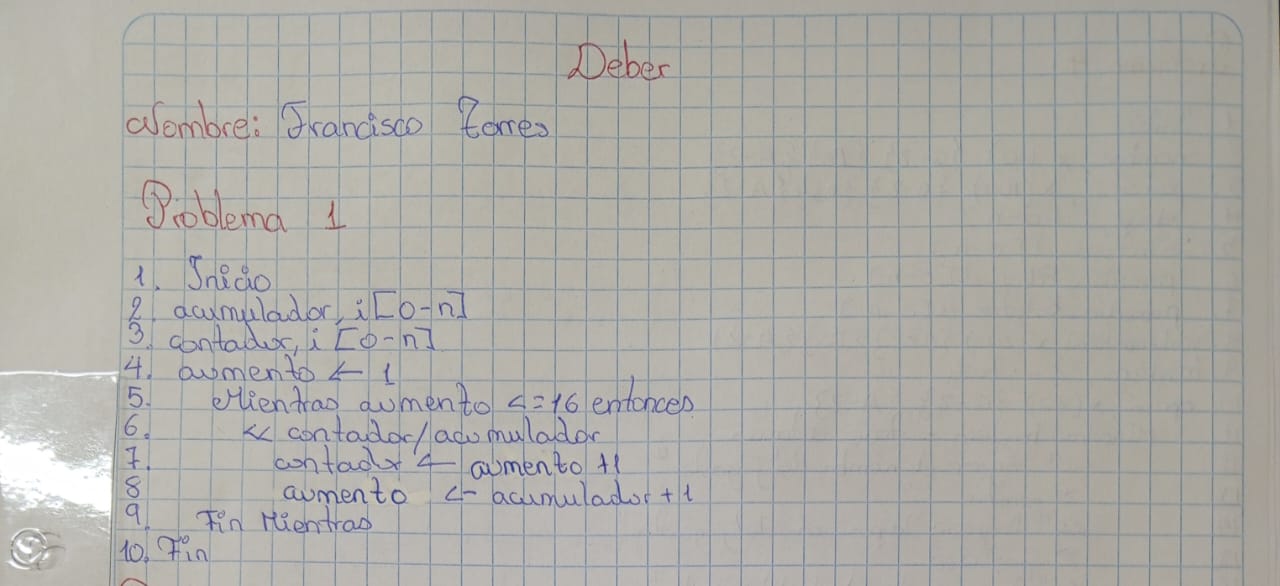 Deber
Nombre: Francisco Torres
Problema 1
1. Inicio
2. acumulador, i [0-n]
3. contador, i [0-n]
4. aumento ← 1
5. Mientras aumento <=16 entonces
6. << contador/acumulador
7. contador ← aumento +1
8 aumento <- acumulador + 1
9. Fin Mientras
10. Fin